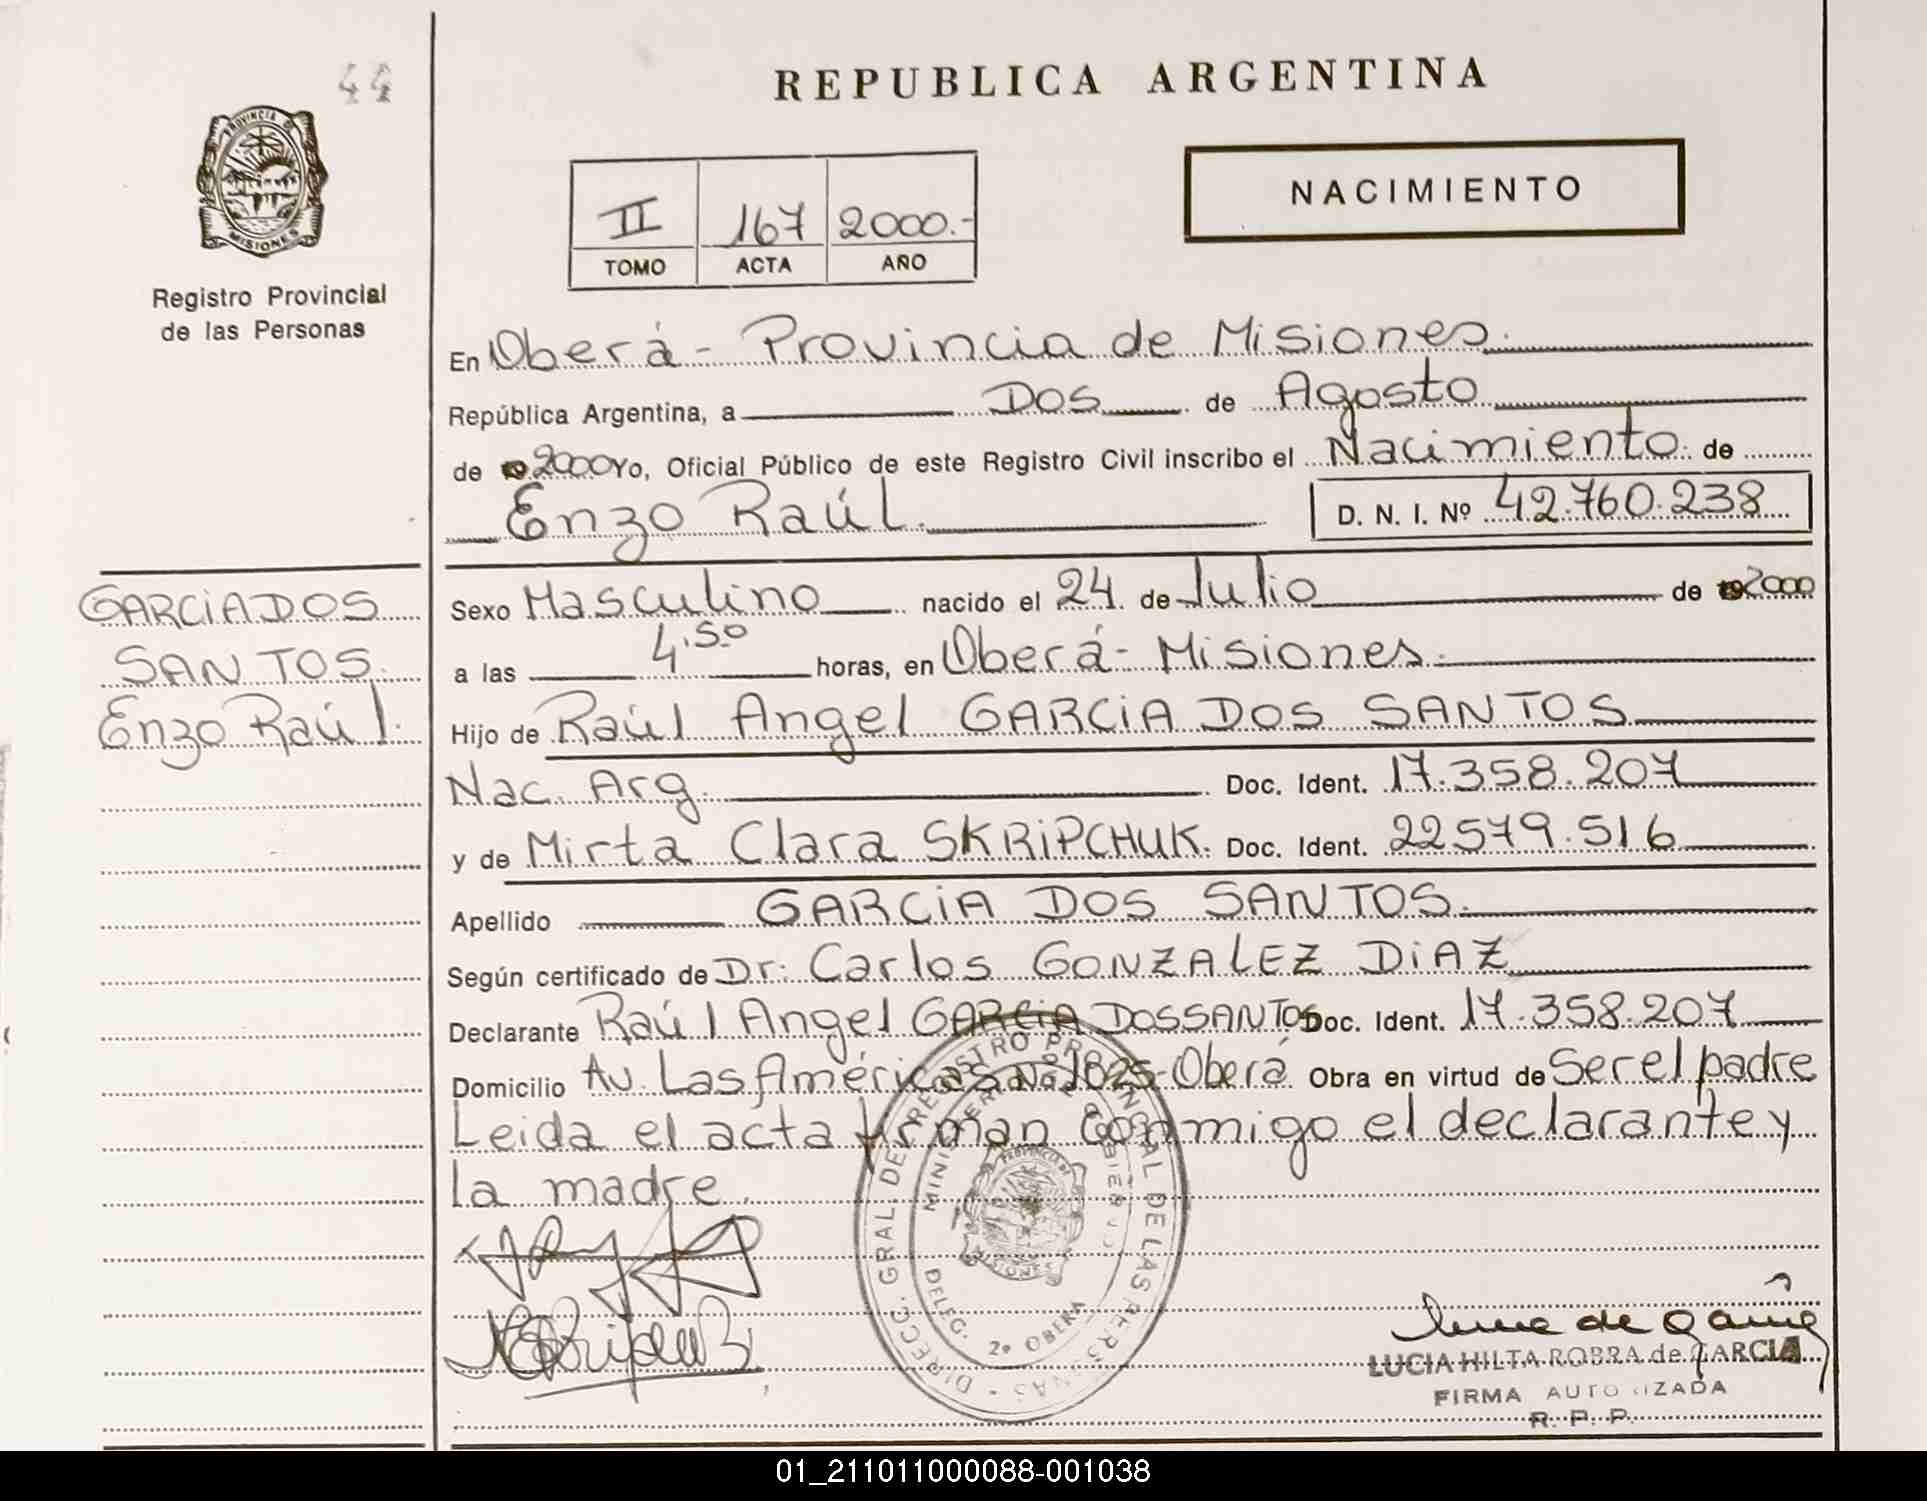 44
REPUBLICA ARGENTINA
PROVINCIA D
MISIONES
Registro Provincial
de las Personas
II 167 2000.-
TOMO ACTA AÑO
NACIMIENTO
En Oberá - Provincia de Misiones.
República Argentina, a Dos de Agosto
de 2000 Yo, Oficial Público de este Registro Civil inscribo el Nacimiento de
Enzo Raúl. D. N. I. Nº 42.760.238
GARCIA DOS
SANTOS.
Enzo Raúl.
Sexo Masculino nacido el 24 de Julio de 2000
a las 4.50 horas, en Oberá - Misiones.
Hijo de Raúl Angel GARCIA DOS SANTOS
Nac. Arg. Doc. Ident. 17.358.207
y de Mirta Clara SKRIPCHUK. Doc. Ident. 22579.516
Apellido GARCIA DOS SANTOS.
Según certificado de Dr. Carlos GONZALEZ DIAZ
Declarante Raúl Angel GARCIA DOS SANTOS Doc. Ident. 17.358.207
Domicilio Av. Las Américas Nº 1825 - Oberá Obra en virtud de Ser el padre
Leida el acta firman conmigo el declarante y
la madre.
DIRECC. GRAL. DE REGISTRO PROVINCIAL DE LAS PERSONAS
MINISTERIO DE GOBIERNO
DELEG. 2º OBERA
PROVINCIA DE
MISIONES
LUCIA HILTA ROBRA de GARCIA
FIRMA AUTORIZADA
R. P. P.
01_211011000088-001038